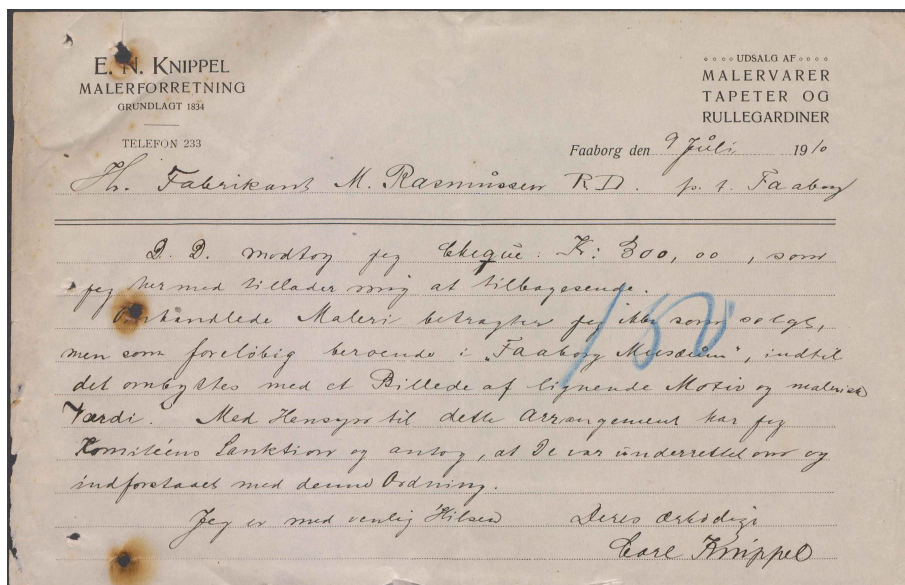 E. N. KNIPPEL
MALERFORRETNING
GRUNDLAGT 1834
TELEFON 233
UDSALG AF
MALERVARER
TAPETER OG
RULLEGARDINER
Faaborg den 9 Juli 1910
Hr. Fabrikant M. Rasmussen R D. p. t. Faaborg
D. D. modtog jeg Cheque. Kr: 300,00, som
jeg hermed tillader mig at tilbagesende.
Omhandlede Maleri betragter jeg ikke som solgt,
men som foreløbig beroende i „Faaborg Musæum", indtil
det ombyttes med et Billede af lignende Motiv og malerisk
Værdi. Med Hensyn til dette Arrangement har jeg
Komitéens Sanktion og antog, at De var underrettet om og
indforstaaet med denne Ordning.
Jeg er med venlig Hilsen Deres ærbødige
Carl Knippel
150